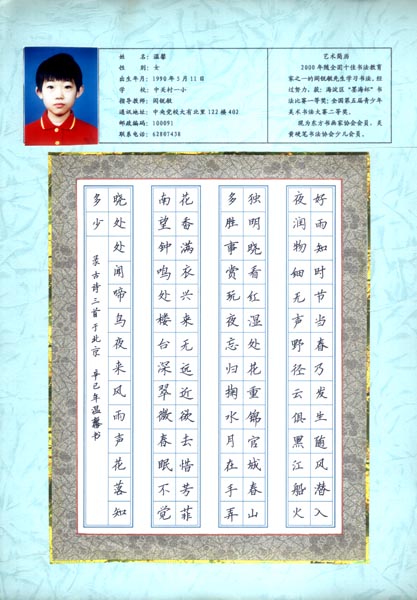 姓 名：温馨
性 别：女
出生年月：1990年5月11日
学 校：中关村一小
指导教师：闫锐敏
通讯地址：中央党校大有北里122楼402
邮政编码：100091
联系电话：62807438
艺术简历
2000年随全国十佳书法教育
家之一的闫锐敏先生学习书法，经
过努力，获：海淀区“墨海杯”书
法比赛一等奖；全国第五届青少年
美术书法大赛二等奖。
现为东方书画家协会会员，吴
黄硬笔书法协会少儿会员。
好雨知时节当春乃发生随风潜入
夜润物细无声野径云俱黑江船火
独明晓看红湿处花重锦官城春山
多胜事赏玩夜忘归掬水月在手弄
花香满衣兴来无远近欲去惜芳菲
南望钟鸣处楼台深翠微春眠不觉
晓处处闻啼鸟夜来风雨声花落知
多少 录古诗三首于北京 辛巳年温馨书